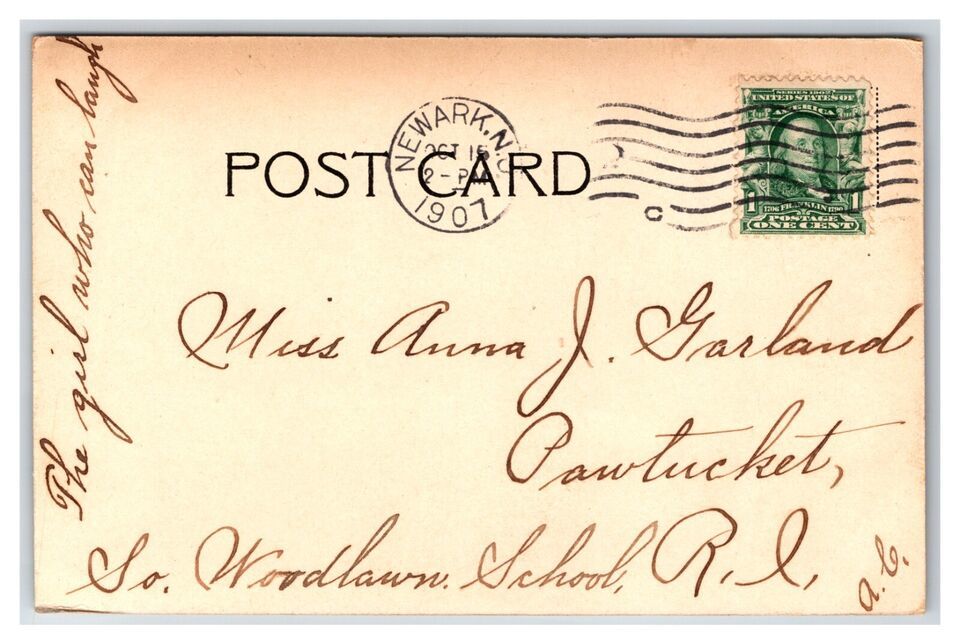 The girl who can laugh
POST CARD
NEWARK, N.J.
OCT 15
2 - PM
1907
C
SERIES 1902
UNITED STATES OF
AMERICA
1 1706 FRANKLIN 1790 1
POSTAGE
ONE CENT
Miss Anna J. Garland
Pawtucket,
So. Woodlawn School, R. I.
a. C.